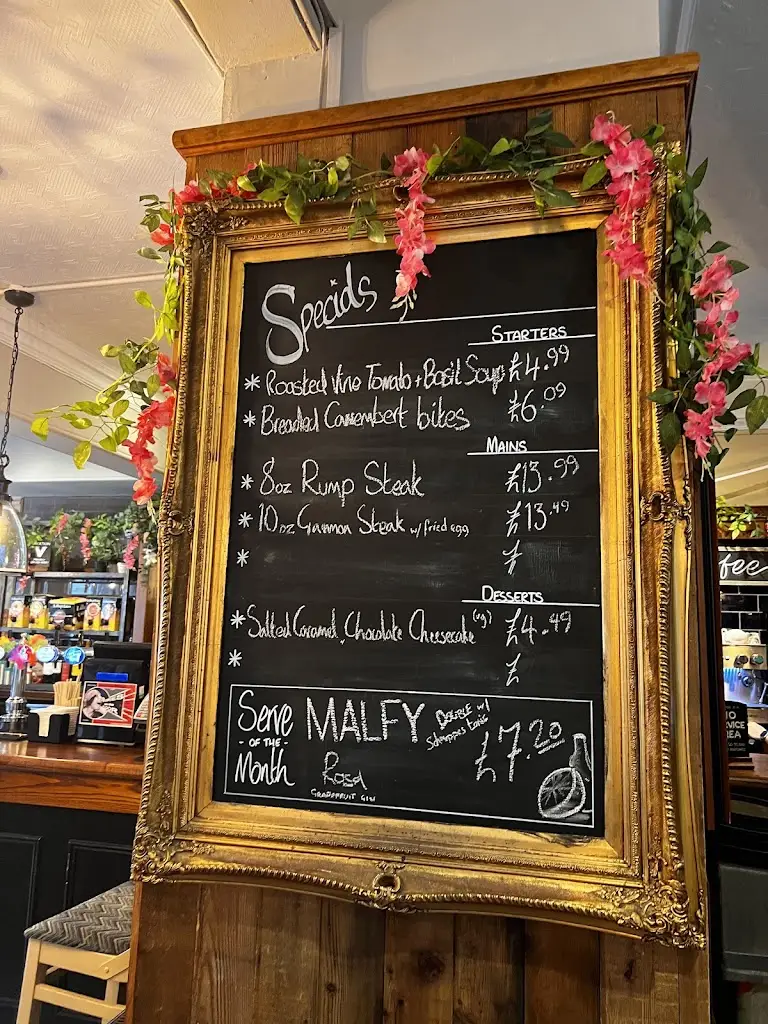 Specials
STARTERS
* Roasted Vine Tomato + Basil Soup £4.99
* Breaded Camembert bites £6.09
MAINS
* 8oz Rump Steak £13.99
* 10oz Gammon Steak w/ fried egg £13.49
* £
DESSERTS
* Salted Caramel, Chocolate Cheesecake (vg) £4.49
* £
Serve
- OF THE -
Month
MALFY
Rosa
GRAPEFRUIT GIN
DOUBLE w/
Schweppes tonic
£7.20
fee